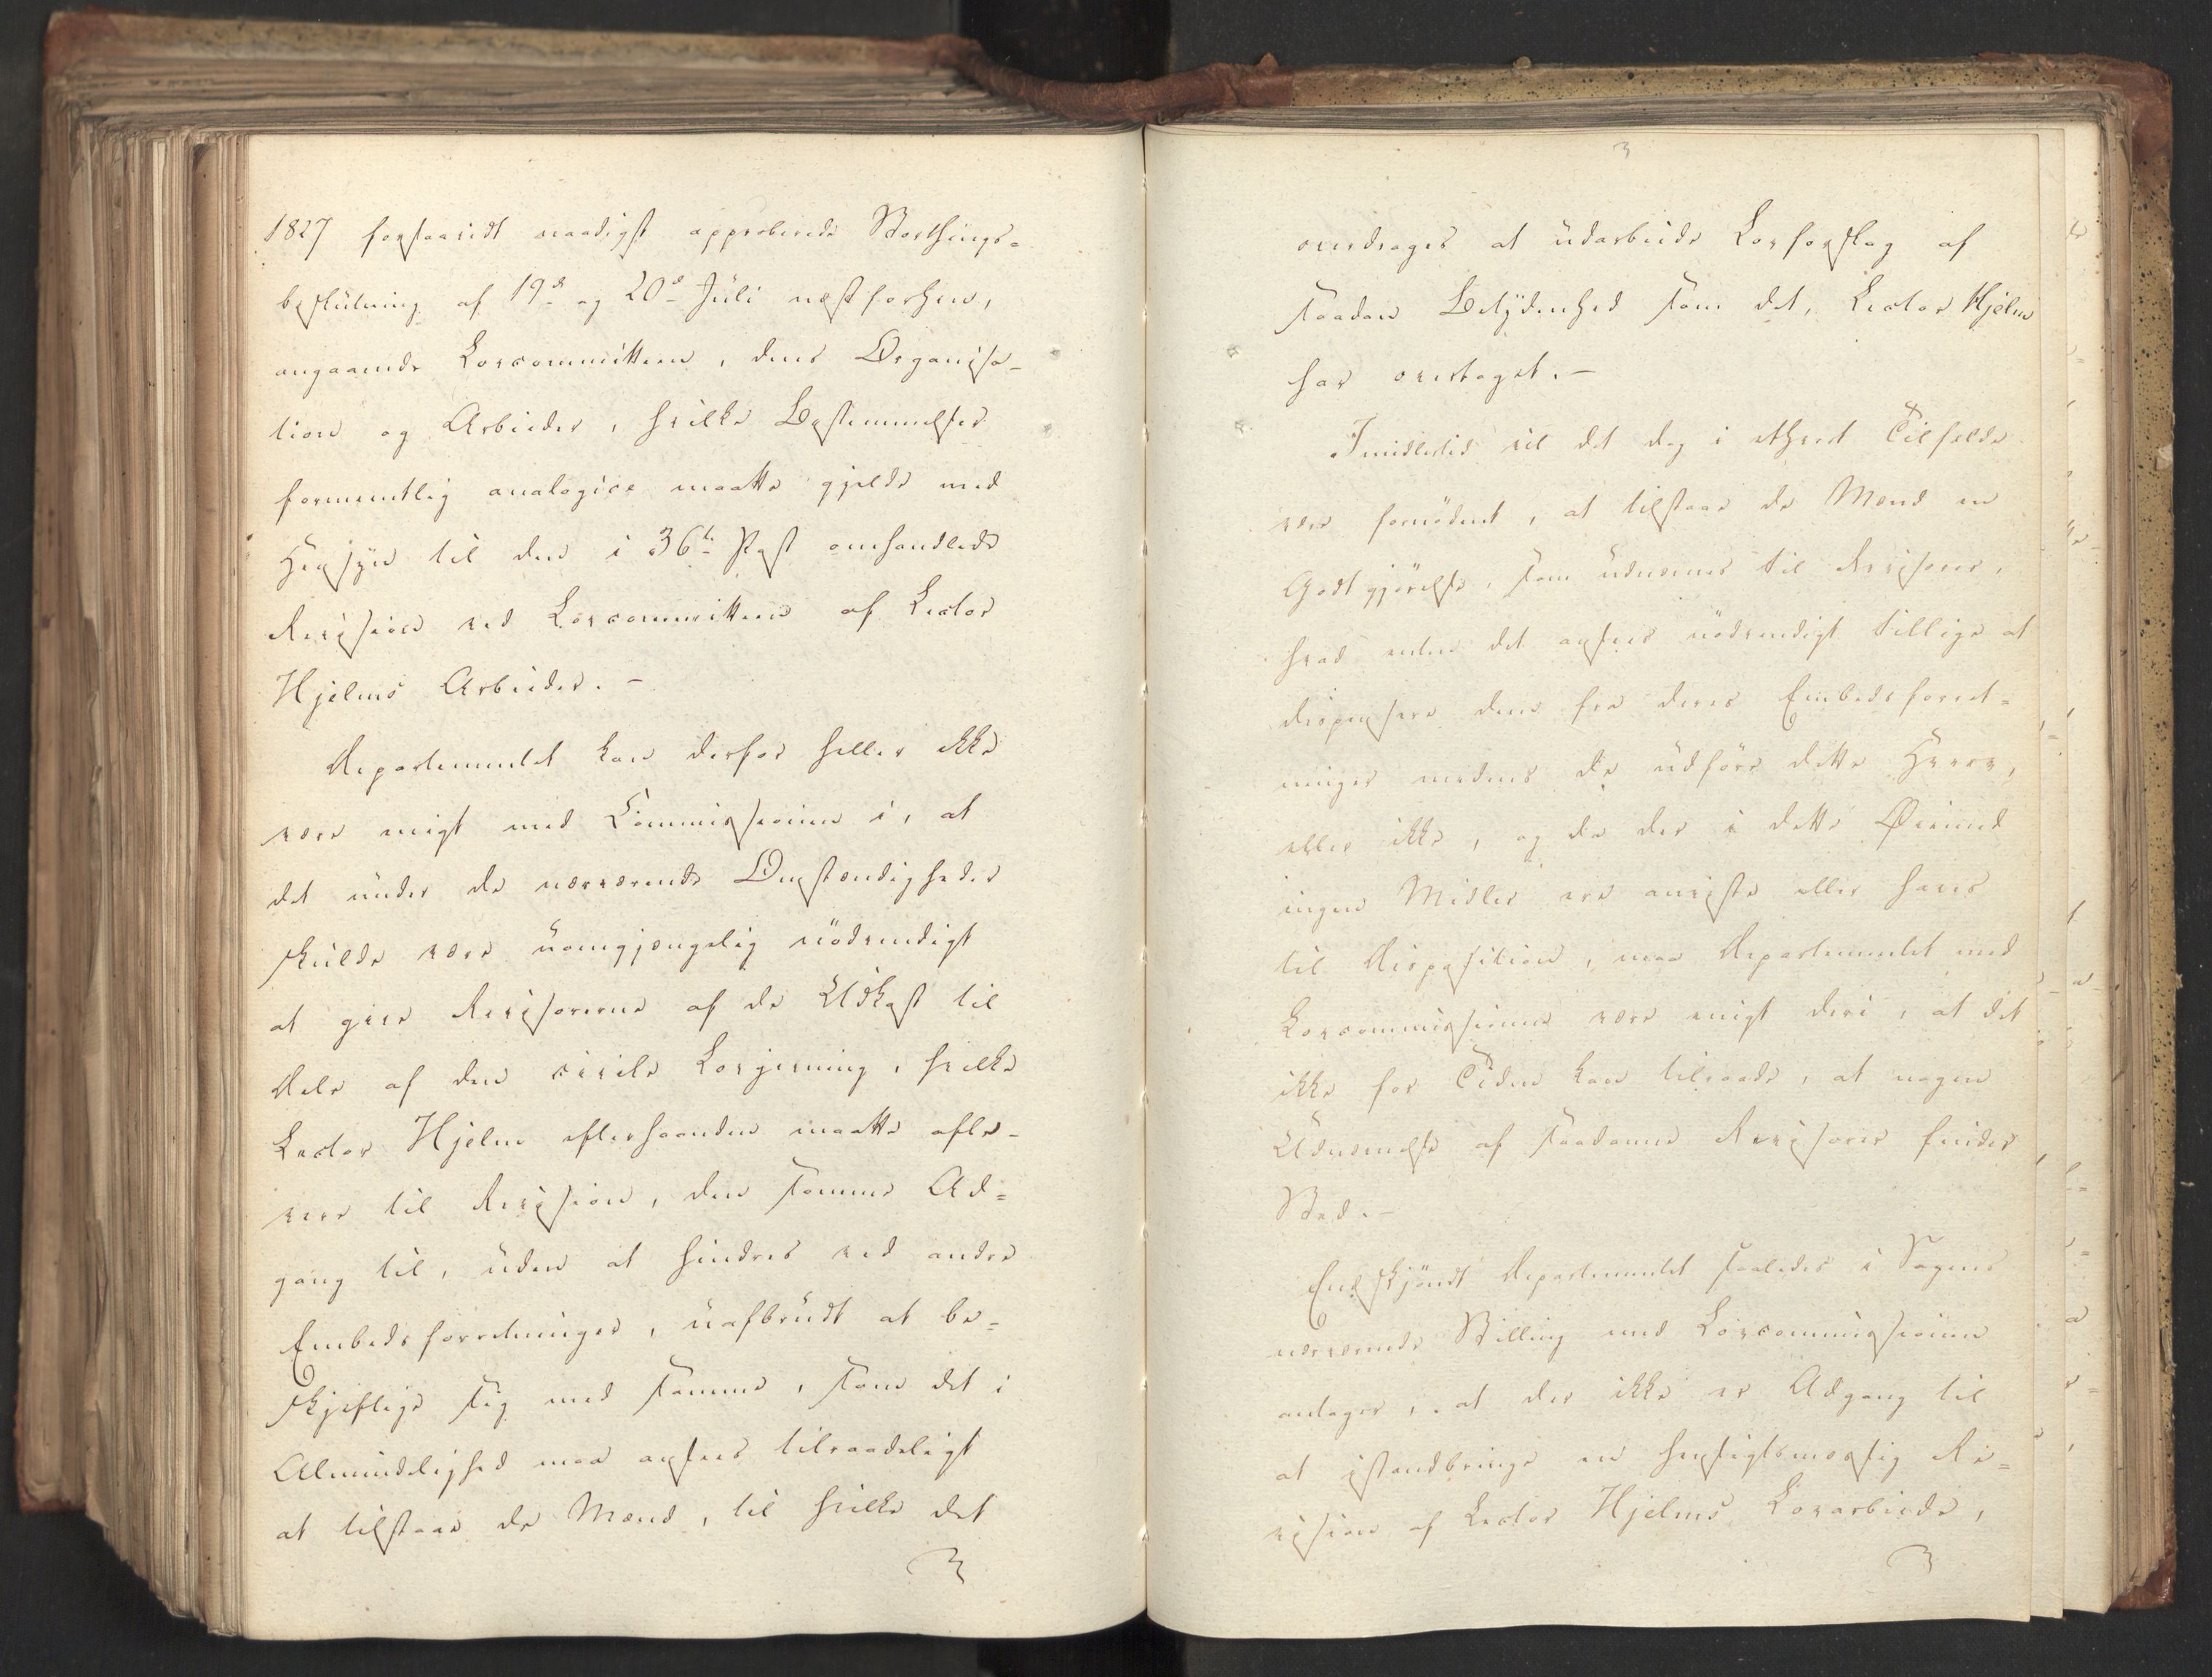 1827 forsaavidt naadigst approberede Storthings-
beslutning af 19de og 20de Juli næstforhen,
angaaende Lovcommitteen, dens Organisa-
tion og Arbeider, hvilke Bestemmelser
formeentlig analogice maatte gjelde med
Hensyn til den i 36te Post omhandlede
Revision ved Lovcommitteen af Lector
Hjelms Arbeider. -
Departementet kan derfor heller ikke
være enigt med Commissionen i, at
det under de nærværende Omstændigheder
skulde være uomgjængelig nødvendigt
at give Revisorerne af de Udkast til
Dele af den civile Lovgivning, hvilke
Lector Hjelm efterhaanden maatte afle-
vere til Revision, den samme Ad-
gang til, uden at hindres ved andre
Embedsforretninger, uafbrudt at be-
skjeftige sig med samme, som det i
Almindelighed maa ansees tilraadeligt
at tilstaae de Mænd, til hvilke det
3
overdrages at udarbeide Lovforslag af
saadan Betydenhed som det, Lector Hjelm
har overtaget. -
Imidlertid vil det dog i ethvert Tilfælde
være fornødent, at tilstaae de Mænd en
Godtgjørelse, som udnævnes til Revisorer,
hvad enten det ansees nødvendigt tillige at
dispensere dem fra deres Embedsforret-
ninger medens de udføre dette Hverv,
eller ikke, og da der i dette Øiemed
ingen Midler ere anviste eller haves
til Disposition, maa Departementet med
Lovcommissionen være enigt deri, at det
ikke for Tiden kan tilraade, at nogen
Udnævnelse af saadanne Revisorer finder
Sted. -
Endskjøndt Departementet saaledes i Sagens
nærværende Stilling med Lovcommissionen
antager, at der ikke er Adgang til
at istandbringe en hensigtsmæssig Re-
vision af Lector Hjelms Lovarbeide,